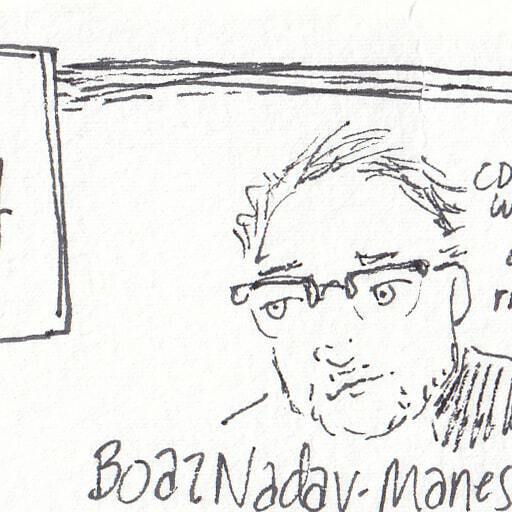 CD
W
Boaz Nadav-Manes